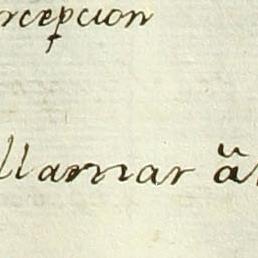 rcepcion
llamar ä